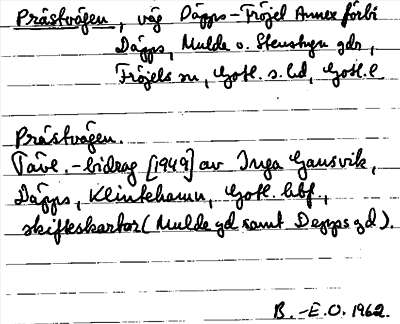 Prästvägen, väg Däpps–Fröjel Annex förbi
Däpps, Mulde o. Stenstugu gdr,
Fröjels sn, Gotl. s. hd, Gotl. l
Prästvägen.
Tävl.-bidrag [1949] av Inga Gansvik,
Däpps, Klintehamn, Gotl. hbf.,
skifteskartor (Mulde gd samt Depps gd).
B.-E.O. 1962.